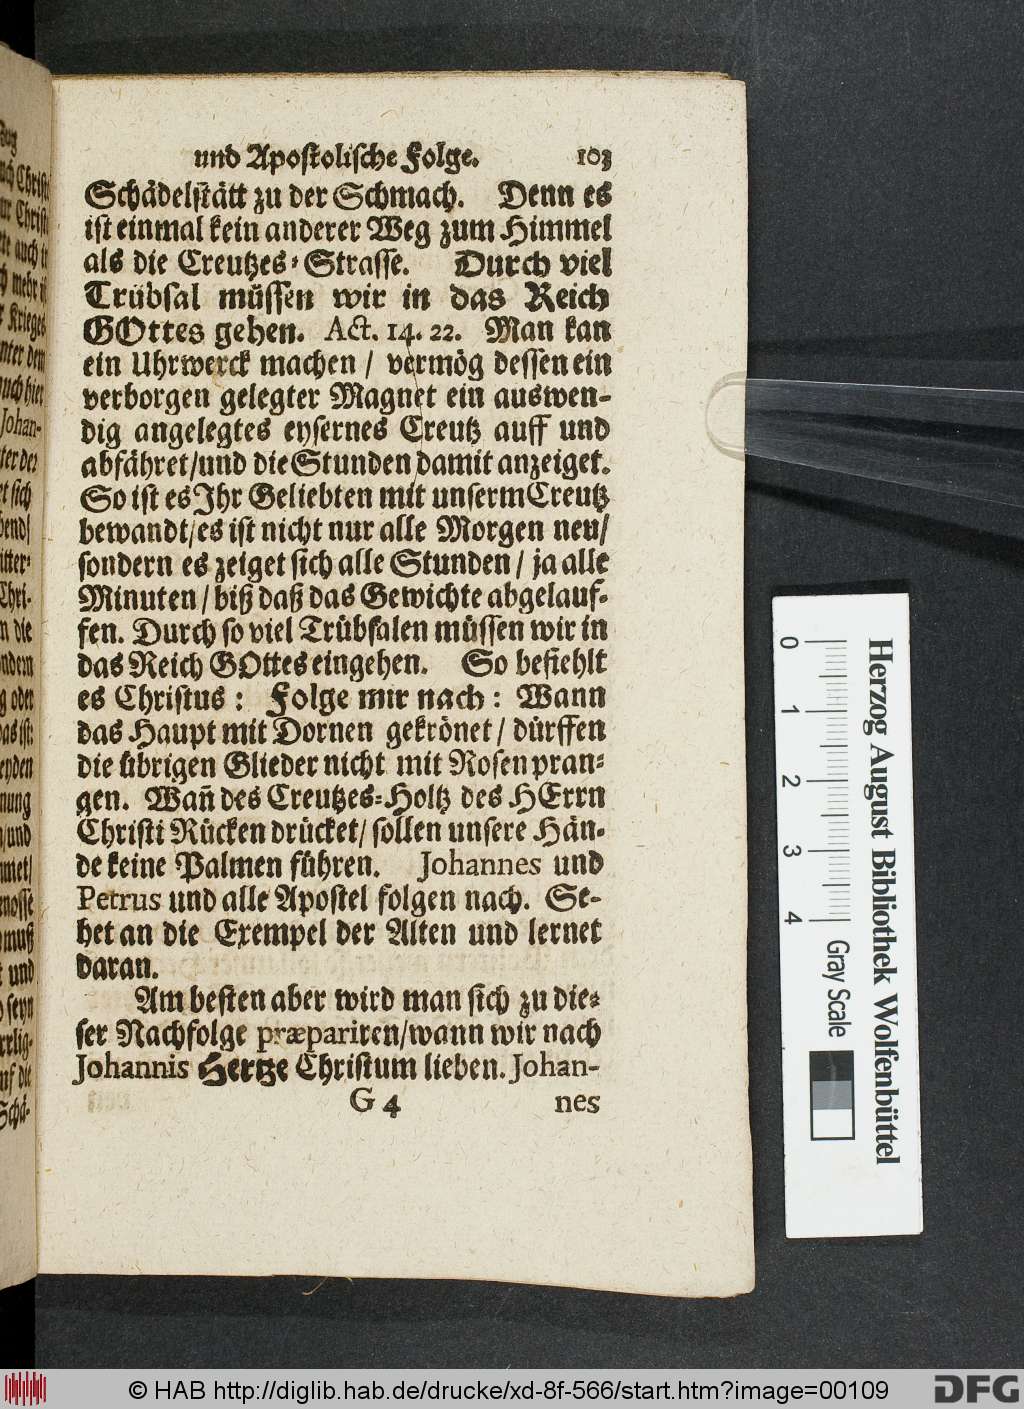 und Apostolische Folge. 103
Schädelstätt zu der Schmach. Denn es
ist einmal kein anderer Weg zum Himmel
als die Creutzes-Strasse. Durch viel
Trübsal müssen wir in das Reich
GOttes gehen. Act. 14. 22. Man kan
ein Uhrwerck machen / vermög dessen ein
verborgen gelegter Magnet ein auswen-
dig angelegtes eysernes Creutz auff und
abfähret/und die Stunden damit anzeiget.
So ist es Ihr Geliebten mit unserm Creutz
bewandt/es ist nicht nur alle Morgen neu/
sondern es zeiget sich alle Stunden / ja alle
Minuten / biß daß das Gewichte abgelauf-
fen. Durch so viel Trübsalen müssen wir in
das Reich GOttes eingehen. So befiehlt
es Christus: Folge mir nach: Wann
das Haupt mit Dornen gekrönet / dürffen
die übrigen Glieder nicht mit Rosen pran-
gen. Wañ des Creutzes-Holtz des HErrn
Christi Rücken drücket/ sollen unsere Hän-
de keine Palmen führen. Johannes und
Petrus und alle Apostel folgen nach. Se-
het an die Exempel der Alten und lernet
daran.
Am besten aber wird man sich zu die-
ser Nachfolge præpariren/wann wir nach
Johannis Hertze Christum lieben. Johan-
G 4 nes
0 1 2 3 4
Gray Scale
Herzog August Bibliothek Wolfenbüttel
© HAB http://diglib.hab.de/drucke/xd-8f-566/start.htm?image=00109
DFG